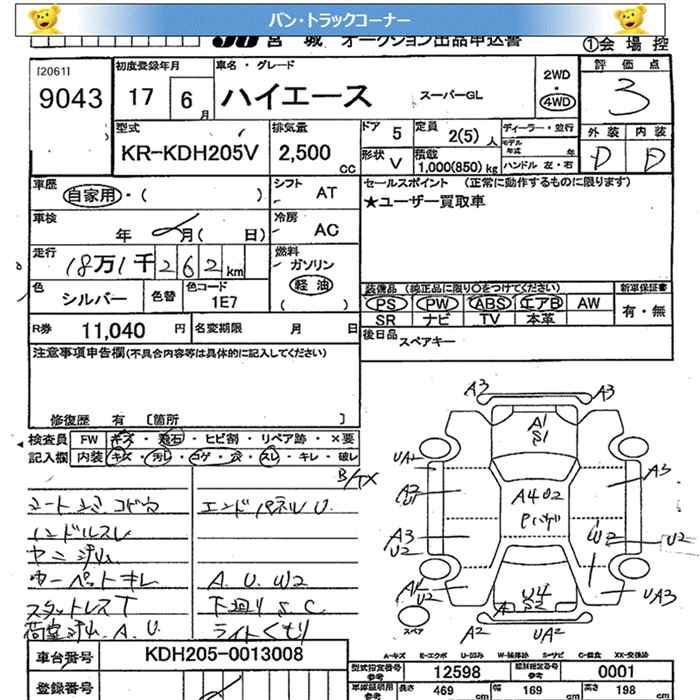 バン・トラックコーナー
JU 宮 城 オークション出品申込書 ①会 場 控
[2061]
9043
初度登録年月
17 6月
車名・グレード
ハイエース スーパーGL
2WD
・
4WD
評 価 点
3
外装 内装
D D
型式
KR-KDH205V
排気量
2,500 CC
ドア 5
定員 2(5) 人
形状 V
積載 1,000(850) kg
ディーラー・並行
モデル年式 年
ハンドル 左・右
車歴
自家用・( )
シフト AT
車検
年 月( 日)
冷房 AC
走行
18万1千262km
燃料
ガソリン
軽油
( )
色 シルバー
色替
色コード 1E7
R券 11,040 円
名変期限 月 日
セールスポイント (正常に動作するものに限ります)
★ユーザー買取車
装備品 (純正品に限り○をつけてください)
PS PW ABS エアB AW
SR ナビ TV 本革
新車保証書
有・無
後日品 スペアキー
注意事項申告欄(不具合内容等は具体的に記入してください)
修復歴 有 [箇所 ]
検査員 FW キズ・飛石・ヒビ割・リペア跡・×要
記入欄 内装 キズ・汚レ・コゲ・穴・スレ・キレ・破レ
ハンドルスレ
ヤニ汚レ
カーペットキレ
スタットレスT
荷室汚レ A.U.
エンドパネルU.
A.U.W2
下廻りS.C.
ライトくもり
A3 A3
A1
S1
UA2
A3
A3
U2
A402
W2
U2
U4
S2
A2
UA2
UA3
スペア
A-キズ E-エクボ U-凹み W-補修跡 S-サビ C-腐食 XX-交換済
車台番号 KDH205-0013008
登録番号
型式指定番号 参考 12598
類別指定番号 参考 0001
車庫証明用 参考
長さ 469 cm
幅 169 cm
高さ 198 cm